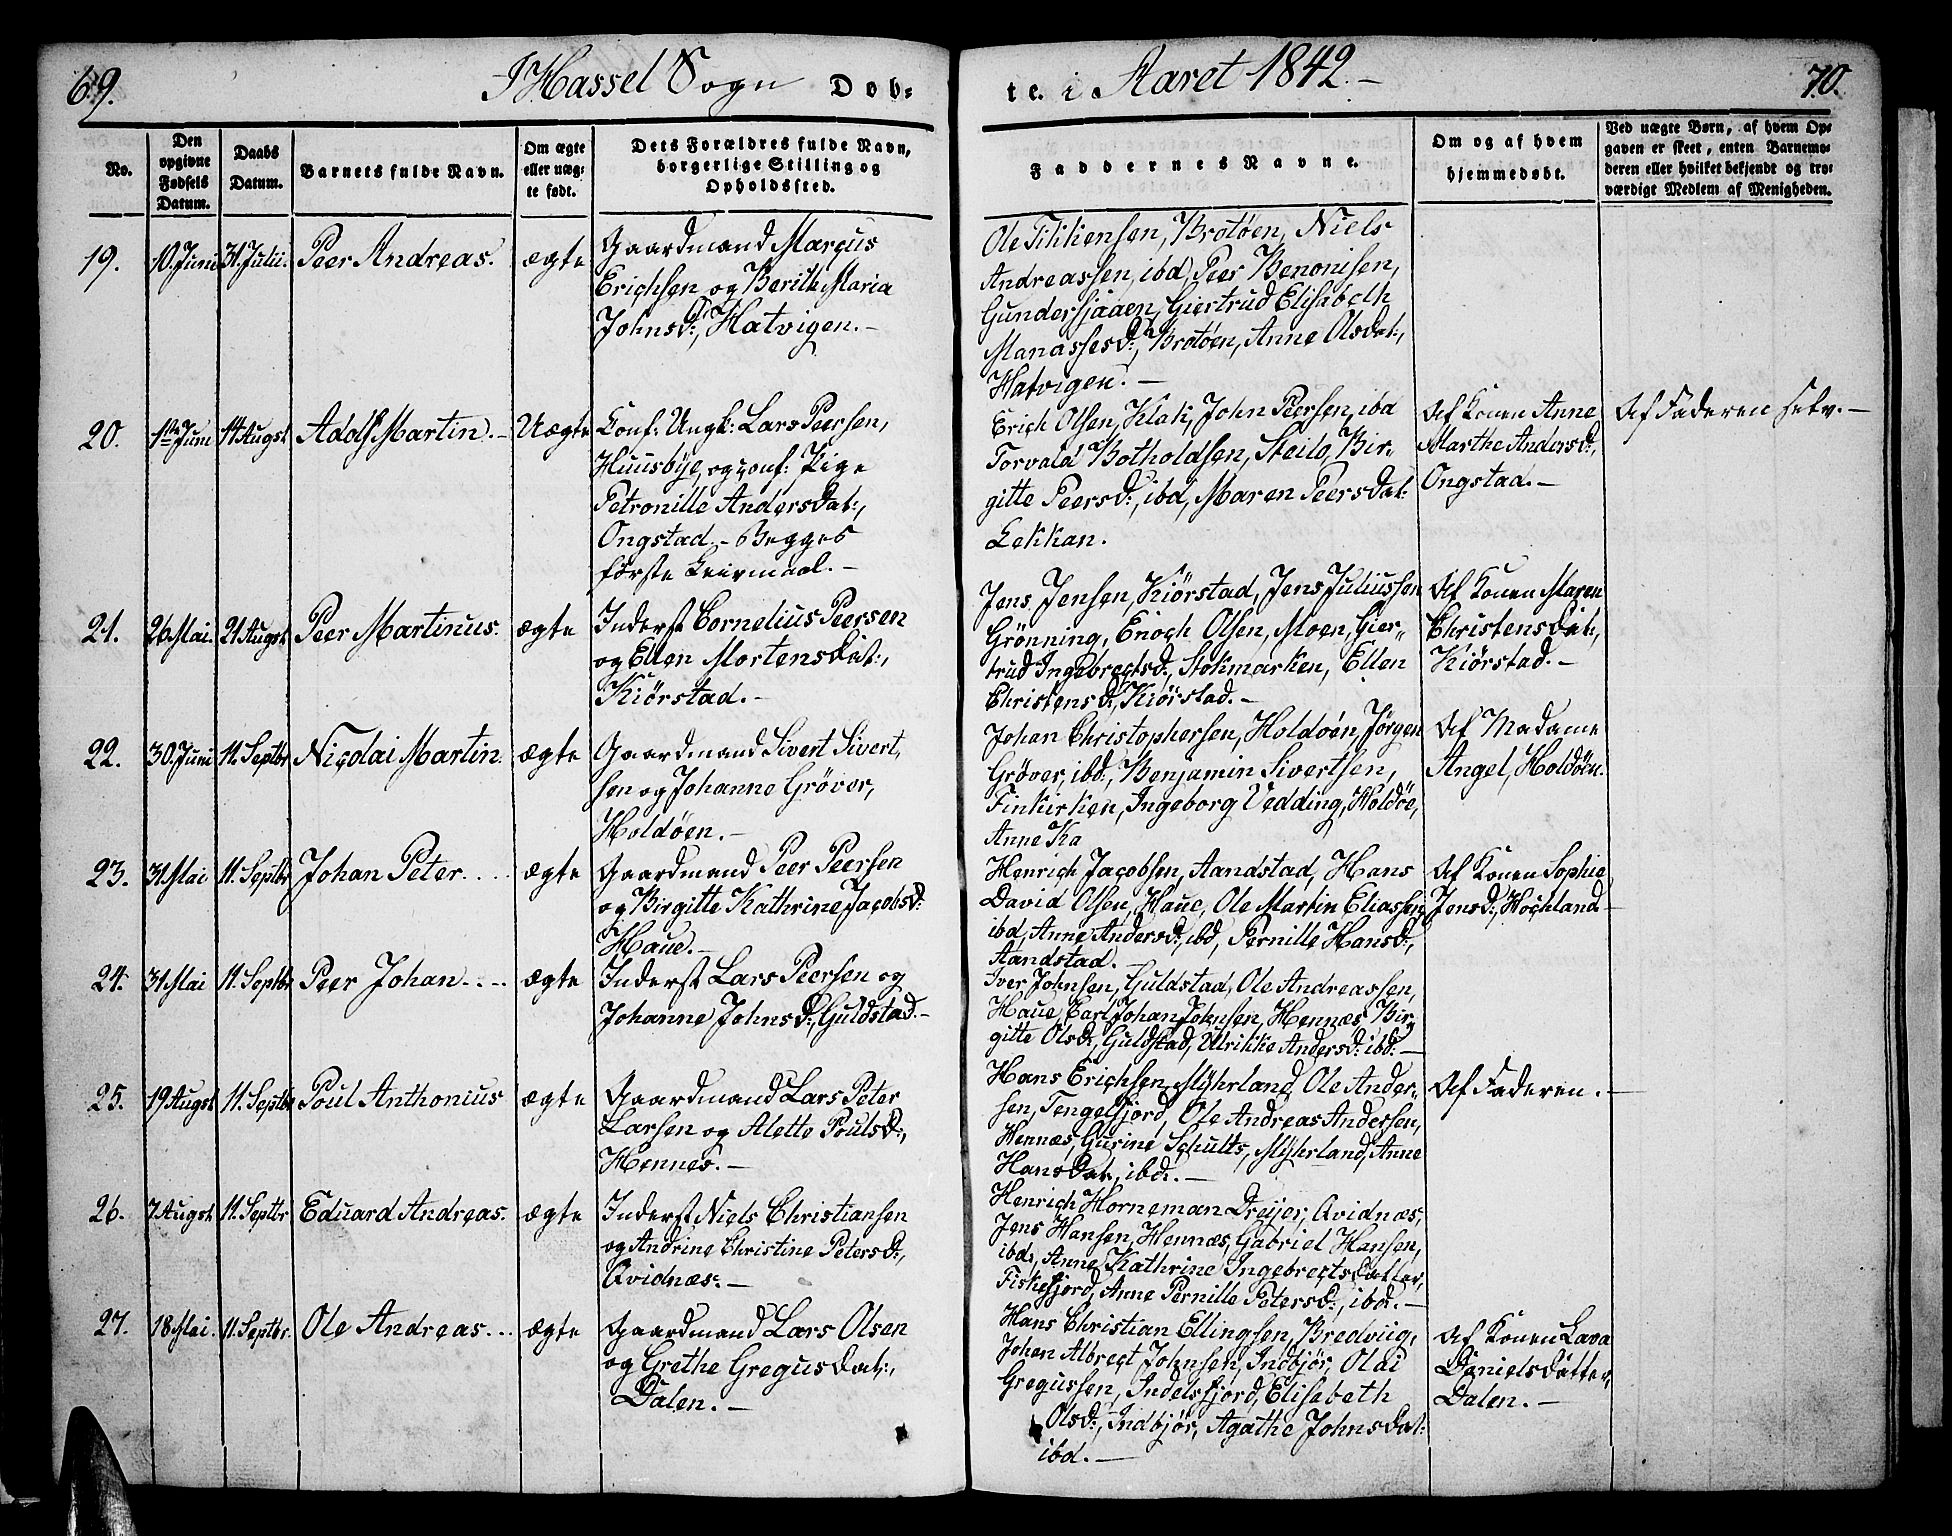 69.
I Hassel Sogn Døb=
te. i Aaret 1842.-
70.
No.
Den
opgivne
Fødsels
Datum.
Daabs
Datum.
Barnets fulde Navn.
Om ægte
eller uæg=
te født.
Dets Forældres fulde Navn,
borgerlige Stilling og
Opholdssted.
Faddernes Navne.
Om og af hvem
hjemmedøbt.
Ved uægte Børn, af hvem Op=
gaven er skeet, enten Barnemo=
deren eller hvilket bekjendt og tro=
værdigt Medlem af Menigheden.
19.
10. Juni
31. Julii.
Peer Andreas.
ægte
Gaardmand Marcus
Erichsen og Berith Maria
Johnsd:, Hatvigen.-
Ole Tikkiensen, Brotøen, Niels
Andreassen, ibd, Peer Benonisen,
Gundersjaaen, Giertrud Elisabeth
Manassesd:, Brotøen, Anne Olsdat:,
Hatvigen.-
20.
1ste Juni
14 Augst
Adolf Martin.-
Uægte
Conf: Ungk: Lars Peersen,
Huusbye, og conf: Pige
Petronille Andersdat:,
Ongstad.- Begges
første Leiermaal.-
Erich Olsen, Klak, John Peersen, ibd
Torvald Botholdsen, Steilo, Bir-
gitte Peersd:, ibd, Maren Peersdat:
Lekkan.
Af Konen Anne
Marthe Andersd:,
Ongstad.-
Af Faderen selv.-
21.
26 Mai.
21 Augst
Peer Martinus.
ægte
Inderst Cornelius Peersen
og Ellen Mortensdat:,
Kiørstad.-
Jens Jensen, Kiørstad, Jens Juliussen
Grønning, Enoch Olsen, Moen, Gier-
trud Ingebrectsd:, Stokmarken, Ellen
Christensd:, Kiørstad.-
Af Konen Maren
Christensdat:,
Kiørstad.-
22.
30. Juni
11. Septbr
Nicolai Martin.
ægte
Gaardmand Sivert Sivert,
sen og Johanne Grøver,
Holdøen.-
Johan Christophersen, Holdøen, Jørgen
Grøver, ibd:, Benjamin Sivertsen,
Finkirken, Ingeborg Vedding, Holdøe,
Anne Ka
Af Madame
Angel, Holdøen.
23.
31 Mai
11. Septbr
Johan Peter....
ægte
Gaardmand Peer Peersen
og Birgitte Kathrine Jacobsd:
Haue.-
Henrich Jacobsen, Aandstad, Hans
David Olsen, Haue, Ole Martin Eliassen,
ibd, Anne Andersd:, ibd, Pernille Hansd:,
Aandstad.-
Af Konen Sophie
Jensd:, Hochland-
24.
31 Mai
11. Septbr
Peer Johan....
ægte
Inderst Lars Peersen og
Johanne Johnsd:, Guldstad.-
Iver Johnsen, Guldstad, Ole Andreassen,
Haue, Carl Johan Johnsen, Hennæs Bir-
gitte Olsd:, Guldstad, Ulrikke Andersd: ibd:-
25.
19 Augst
11. Septbr
Poul Anthonius
ægte
Gaardmand Lars Peter
Larsen og Alette Poulsd:,
Hennes.-
Hans Erichsen, Myhrland, Ole Ander-
sen, Tengelfjord, Ole Andreas Andersen,
Hennæs, Gurine Schults, Myhrland, Anne
Hansdat, ibd:.-
Af Faderen.-
26.
7 Augst
11. Septbr
Eduard Andreas.
ægte
Inderst Niels Christiansen
og Andrine Christine Petersd:,
Qvidnæs.-
Henrich Horneman Dreijer, Qvidnæs,
Jens Hansen, Hennæs, Gabriel Hansen,
ibd:, Anne Kathrine Ingebrectsdatter,
Fiskefjord, Anne Pernille Petersd:, ibd.-
27.
18 Mai.
11. Septbr.
Ole Andreas...
ægte
Gaardmand Lars Olsen
og Grethe Gregusdat:,
Dalen.-
Hans Christian Ellingsen, Bredviig,
Johan Albrect Johnsen, Indbjør, Olai
Gregussen, Indelsfjord, Elisabeth
Olsd:, Indbjør, Agathe Johnsdat:
ibd.-
Af Konen Lava
Danielsdatter,
Dalen.-